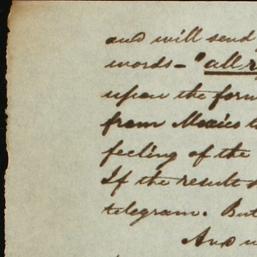 and will send
words - "all r
upon the form
from Mexico t
feeling of the
If the result
telegram. But
And w